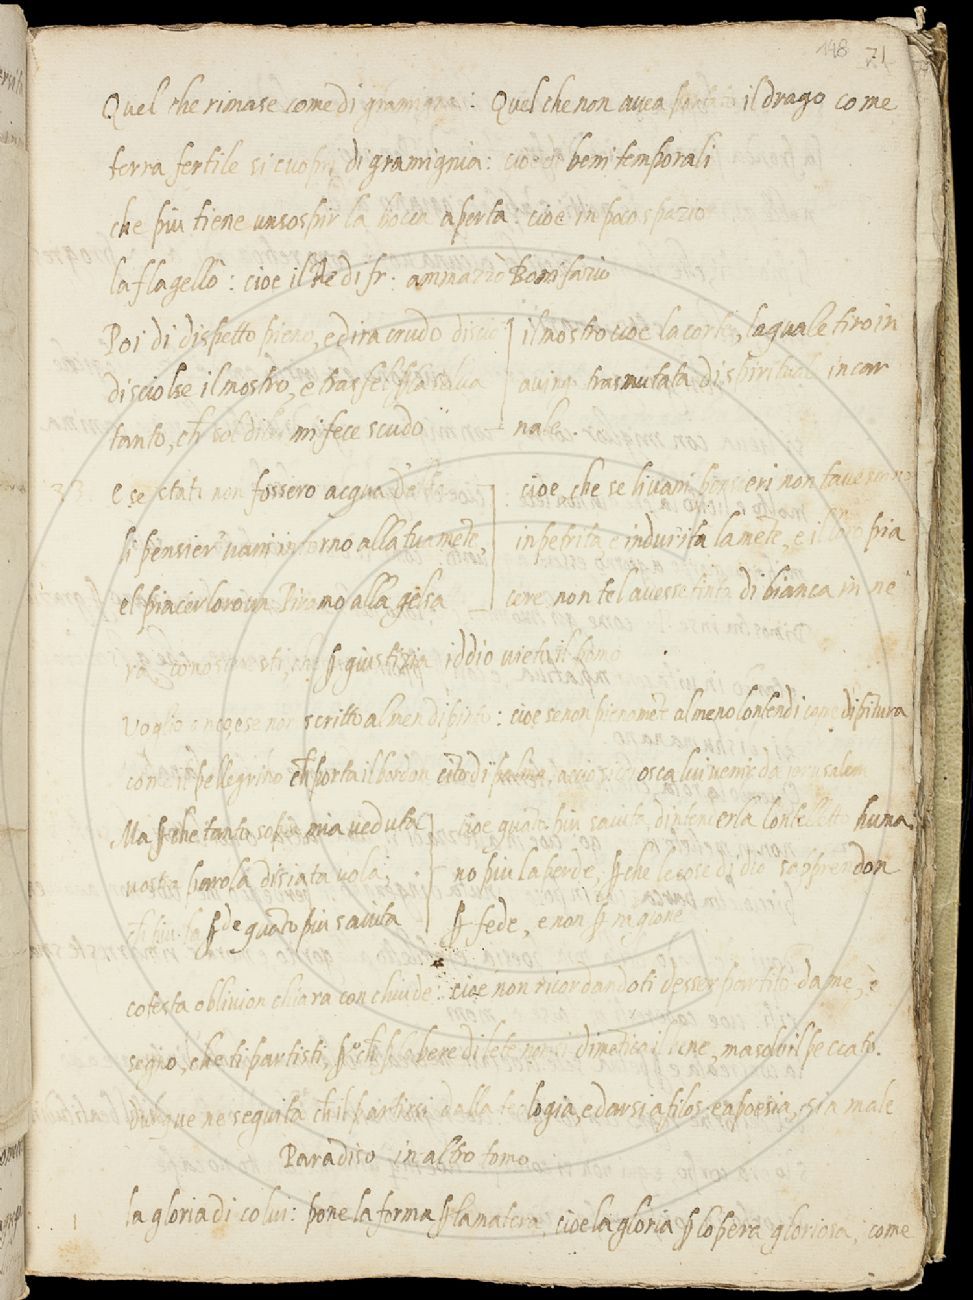 148 71
Quel che rimase come di gramignia: Quel che non avea portato il drago come
terra fertile si cuoprì di gramignia: cioè beni temporali
che più tiene un sospir la bocca aperta: cioe in poco spazio
la flagellò: cioe il Re di fr: ammazzò Bonifazio
Poi di dispetto pieno, e d ira crudo
disciolse il mostro, e
tanto, ch sol di lei mi fece scudo
il mostro cioe la corte, la quale tirò in
trasmutata di spirituale in car
nale.
33 e se stati non fossero acqua d'elsa
li pensier vani intorno alla tua mete,
e'l piacer loro un Piramo alla gelsa
cioe, che se li vani pensieri non t'avessino
inpetrita e indurita la mete, e il loro pia
cere non te l avesse tinta di bianca in ne
ra conosceresti, che p giustizia iddio vietò il pomo
Voglio anco, e se non scritto almen dipinto: cioe se non pienamete almeno lontendi come dipitura
come il pellegrino ch porta il bordon cinto di palma, acciò si conosca lui venir da ierusalem
Ma pche tanto sopra mia veduta
vostra parola disiata vola,
ch più la pde quato più s aiuta
cioe quato più s aiuta, d intenderla l ontelletto huma
no più la perde, pche le cose di dio s apprendon
p fede, e non p ragione
cotesta oblivion chiara conchiude: cioè non ricordandoti desser partito da me, è
segno, che ti partisti, pch p bere di lete non si dimetica il bene, ma solo il peccato.
dunque ne seguita ch il partirsi dalla teologia, e darsi a filos. e a poesia, sia male
Paradiso in altro tomo
1 la gloria di colui: pone la forma p la materia, cioe la gloria p l opera gloriosa, come